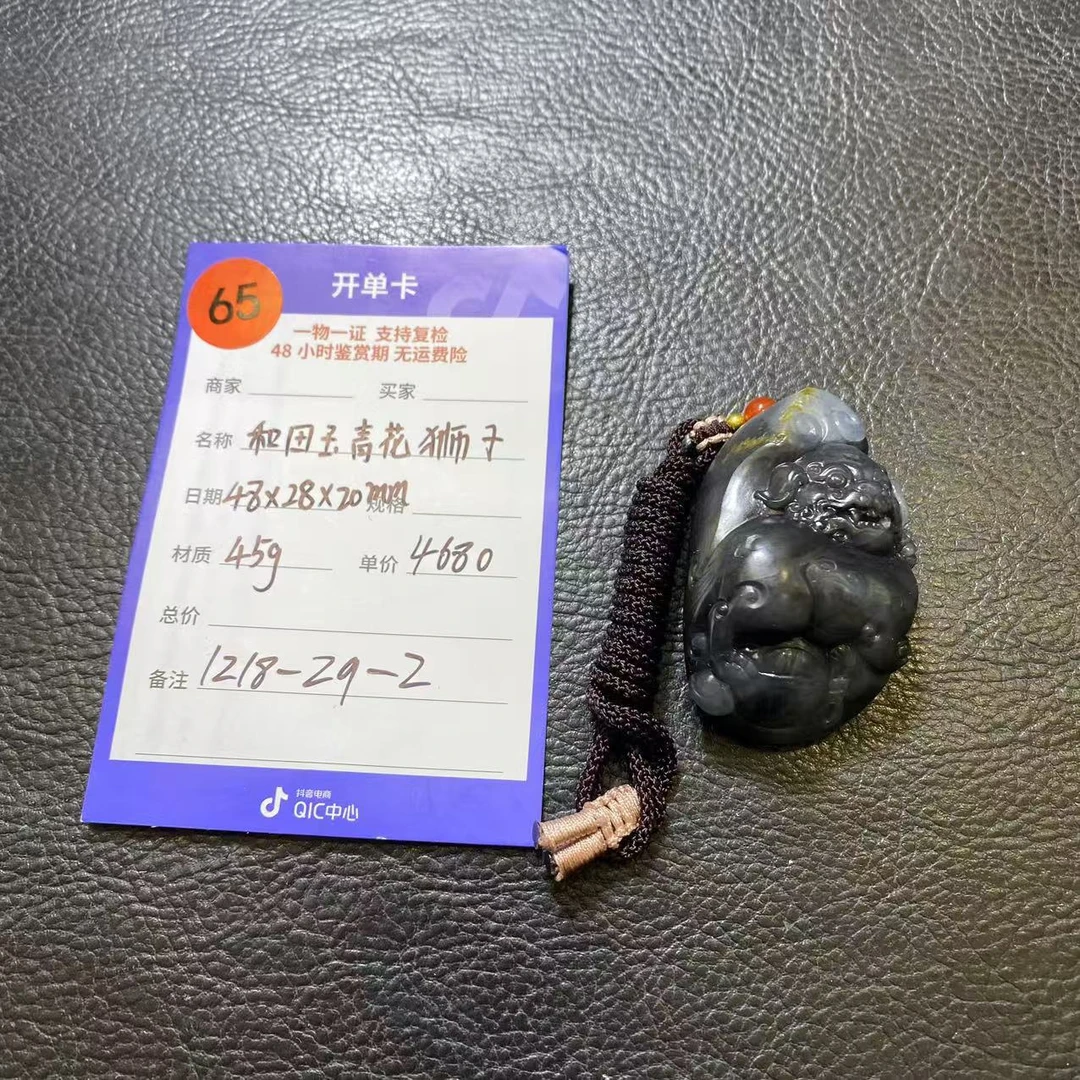 65
开单卡
一物一证 支持复检
48 小时鉴赏期 无运费险
商家 买家
名称 和田玉青花狮子
日期 48×28×20mm 规格
材质 45g 单价 4680
总价
备注 1218-29-2
抖音电商
QIC中心